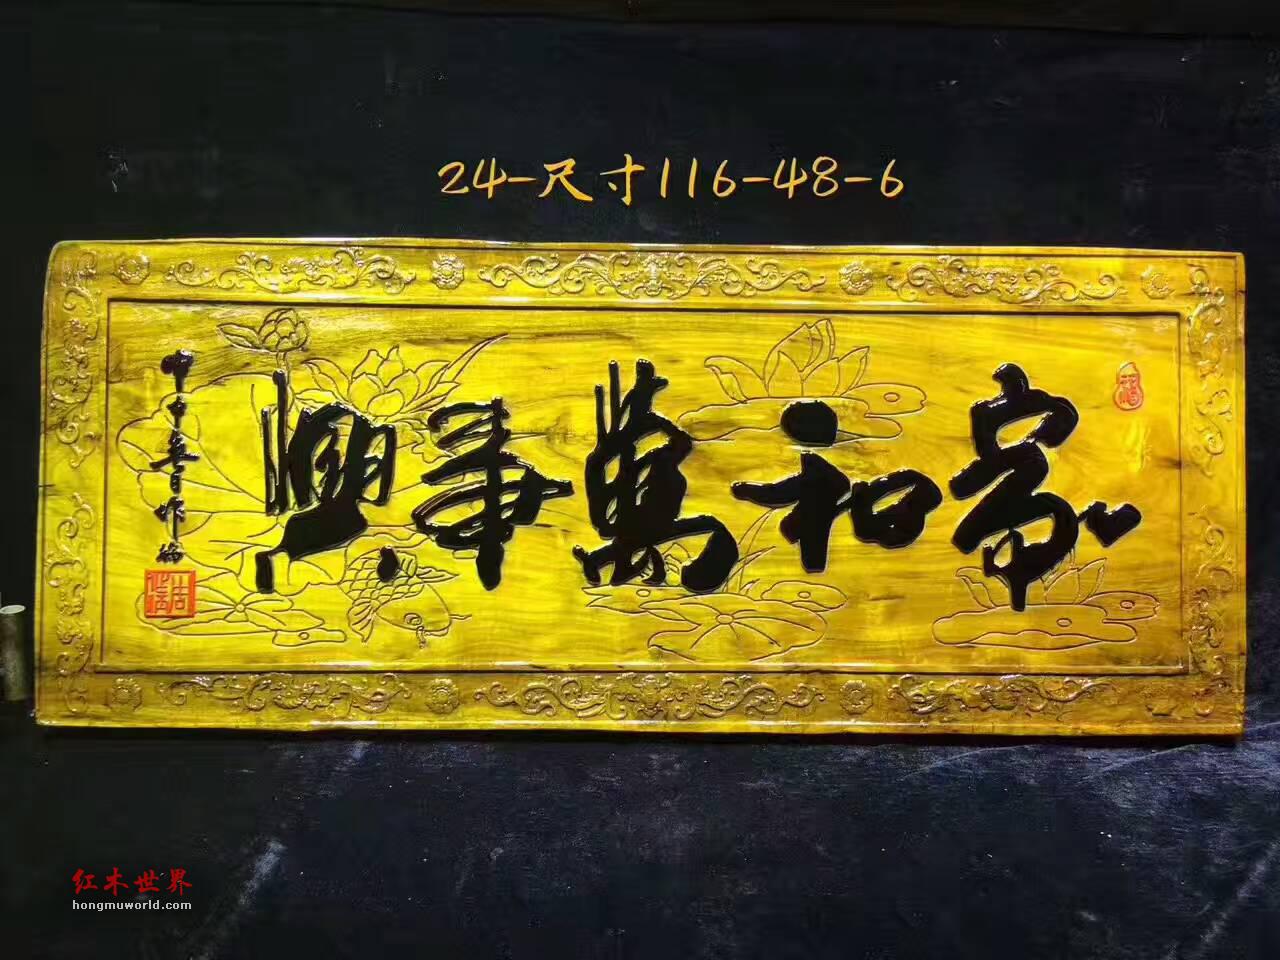 24-尺寸116-48-6
家和萬事興
福
红木世界
hongmuworld.com